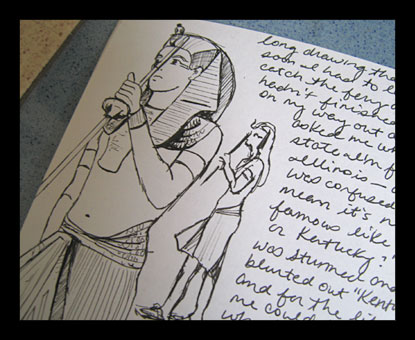 long drawing tha
soon I had to l
catch the fery
hadn't finished
on my way out a
asked me wh
state
illinois —
was confused
mean it's n
famous like
or Kentucky?"
was stunned and
blurted out "Kent
and for the
me could